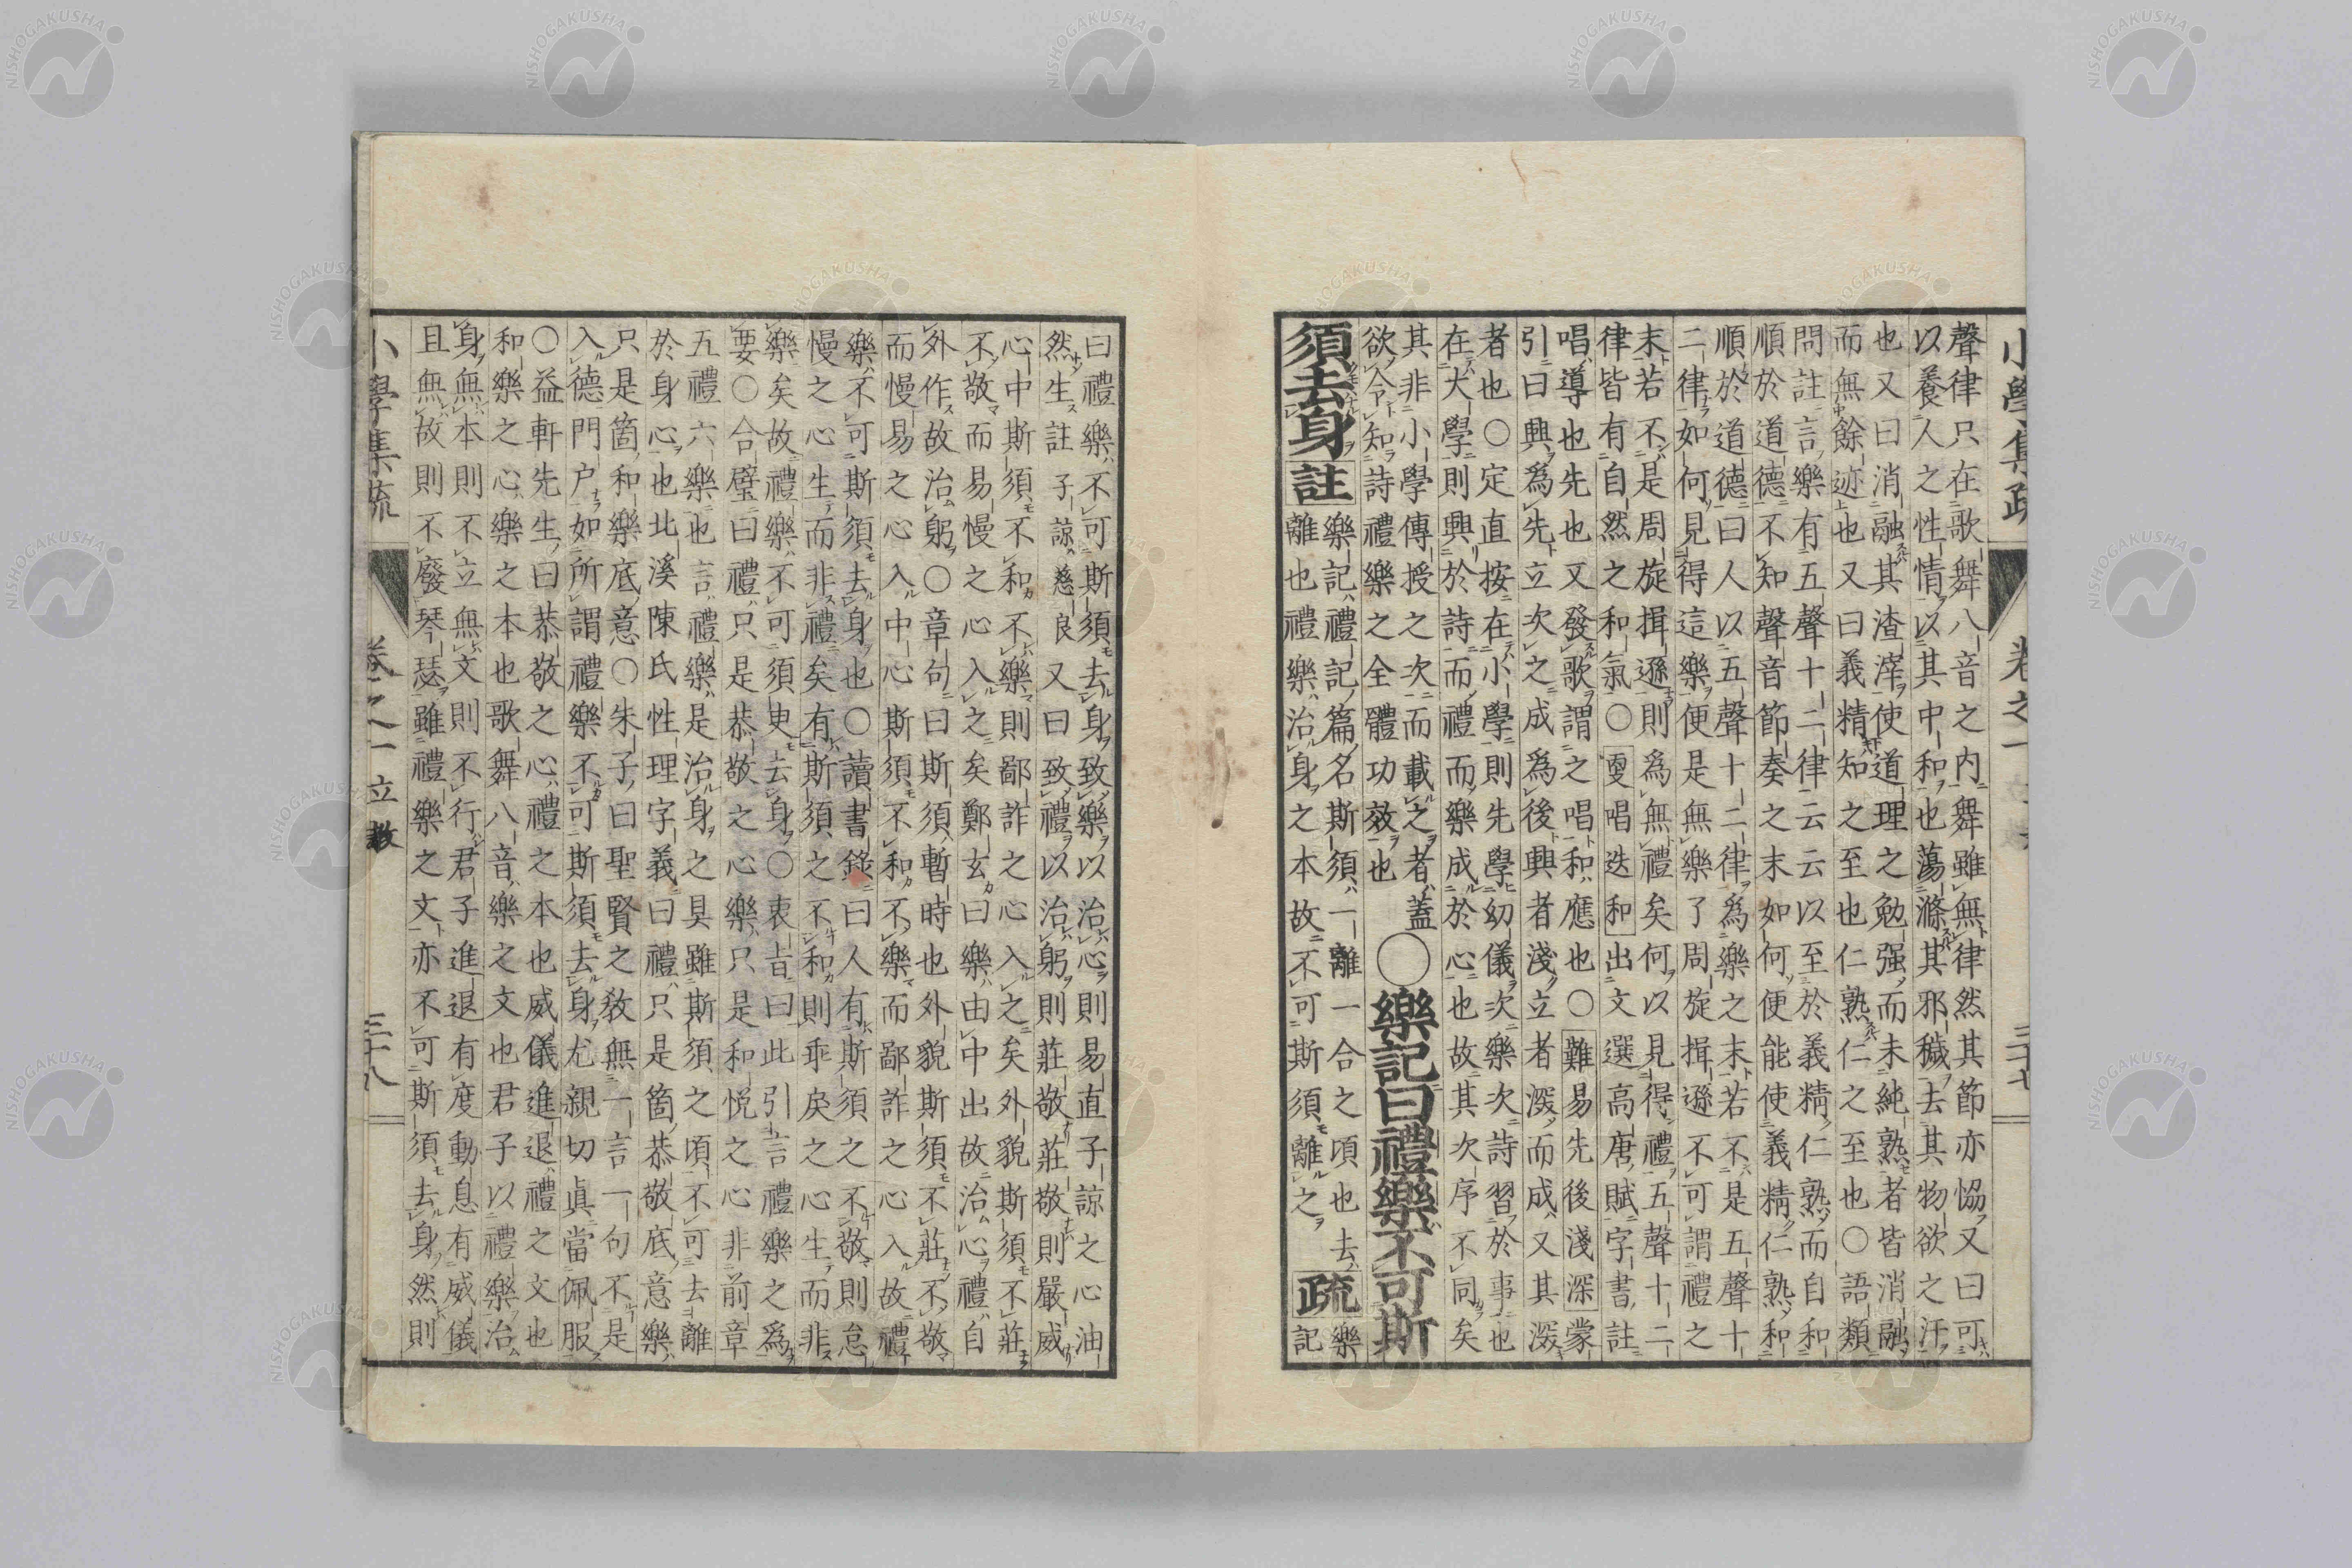 聲律只在歌舞八音之内舞雖無律然其節亦恊又曰可
以養人之性情以其中和也蕩滌其邪穢去其物欲之汙
也又曰消融其渣滓使道理之勉强而未純熟者皆消融
而無餘迹也又曰義精知之至也仁熟仁之至也〇語類
問註言樂有五聲十二律云云以至於義精仁熟而自和
順於道德不知聲音節奏之末如何便能使義精仁熟和
順於道德曰人以五聲十二律爲樂之末若不是五聲十
二律如何見得這樂便是無樂了周旋揖遜不可謂禮之
末若不是周旋揖遜則爲無禮矣何以見得禮五聲十二
律皆有自然之和氣〇更唱迭和出文選高唐賦字書註
唱導也先也又發歌謂之唱和應也〇難易先後淺深蒙
引曰興爲先立次之成爲後興者淺立者深而成又其深
者也〇定直按在小學則先學幼儀次樂次詩習於事也
在大學則興於詩而禮而樂成於心也故其次序不同矣
其非小學傳授之次而載之者蓋
欲令知詩禮樂之全體功效也
〇樂記曰禮樂不可斯
須去身
註
樂記禮記篇名斯須一離一合之頃也去
離也禮樂治身之本故不可斯須離之
疏
樂
記
曰禮樂不可斯須去身致樂以治心則易直子諒之心油
然生註子諒慈良又曰致禮以治躬則莊敬莊敬則嚴威
心中斯須不和不樂則鄙詐之心入之矣外貌斯須不莊
不敬而易慢之心入之矣鄭玄曰樂由中出故治心禮自
外作故治躬〇章句曰斯須暫時也外貌斯須不莊不敬
而慢易之心入中心斯須不和不樂而鄙詐之心入故禮
樂不可斯須去身也〇讀書錄曰人有斯須之不敬則怠
慢之心生而非禮矣有斯須之不和則乖戾之心生而非
樂矣故禮樂不可須臾去身〇衷旨曰此引言禮樂之爲
要〇合璧曰禮只是恭敬之心樂只是和悅之心非前章
五禮六樂也言禮樂是治身之具雖斯須之頃不可去離
於身心也北溪陳氏性理字義曰禮只是箇恭敬底意樂
只是箇和樂底意〇朱子曰聖賢之敎無一言一句不是
入德門户如所謂禮樂不可斯須去身尤親切眞當佩服
〇益軒先生曰恭敬之心禮之本也威儀進退禮之文也
和樂之心樂之本也歌舞八音樂之文也君子以禮樂治
身無本則不立無文則不行君子進退有度動息有威儀
且無故則不廢琴瑟雖禮樂之文亦不可斯須去身然則
小學集疏
卷之一
立敎
三十八